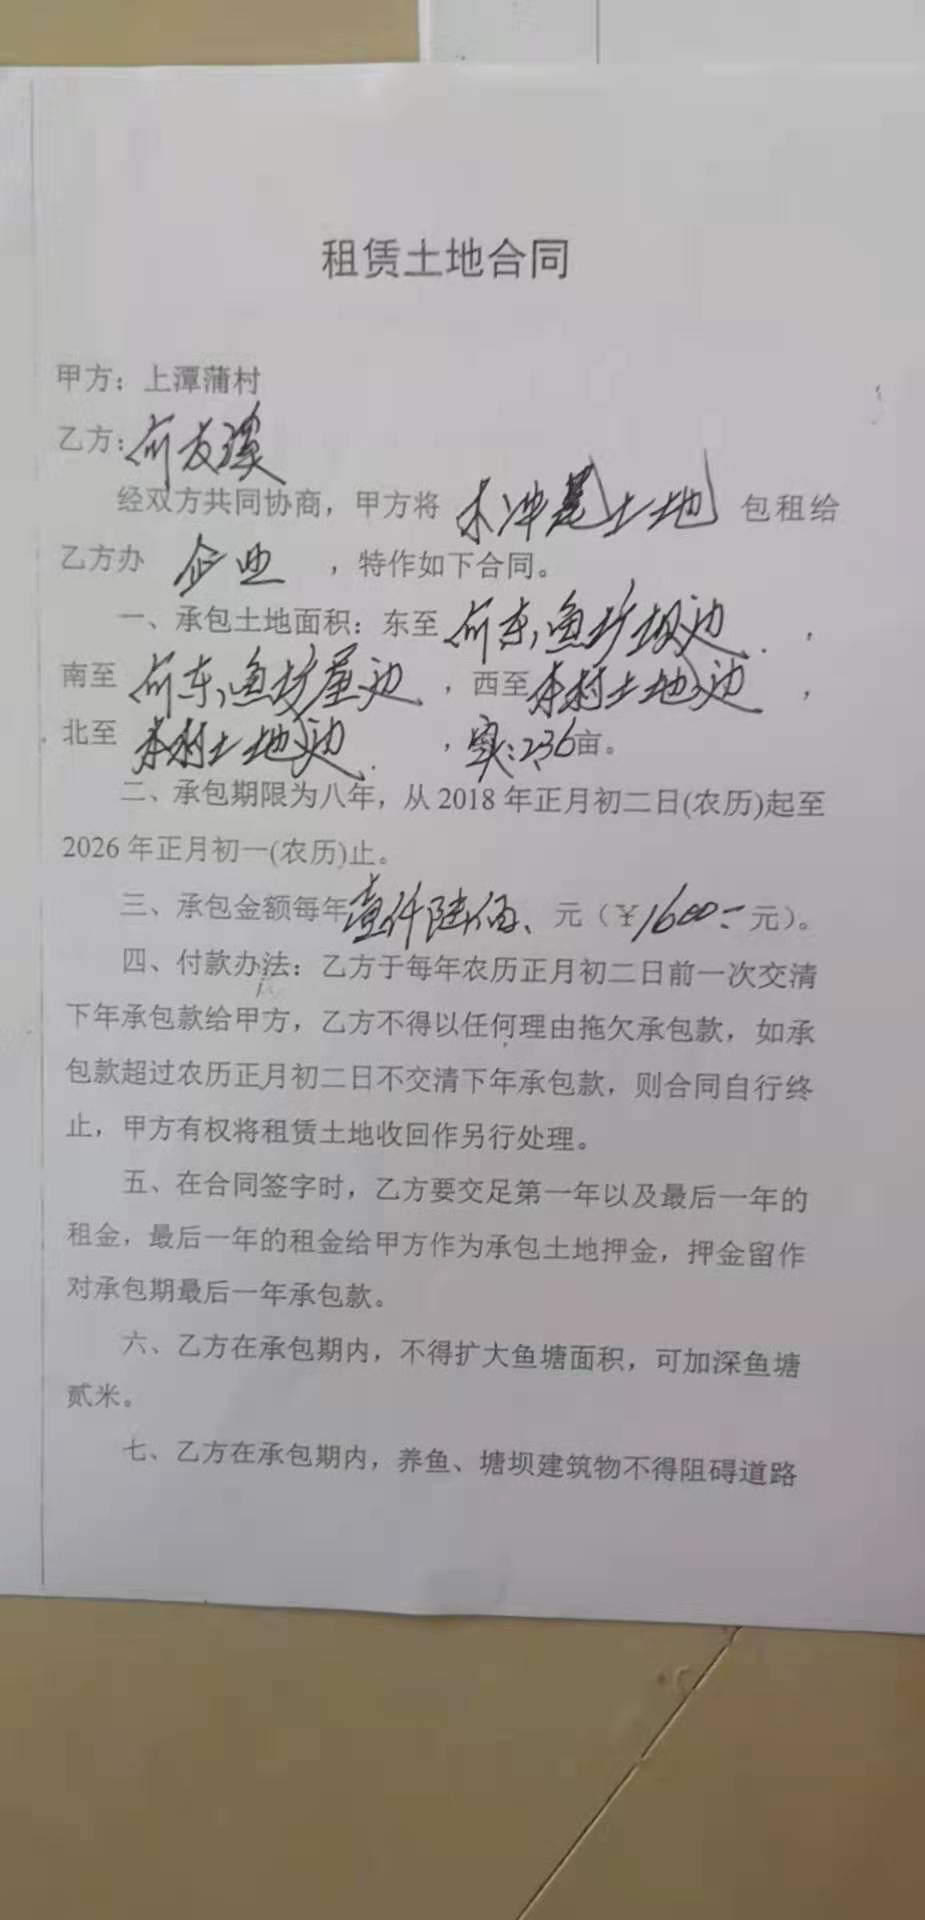 租赁土地合同
甲方：上潭蒲村
乙方：何友溪
经双方共同协商，甲方将 木冲尾土地 包租给
乙方办 企业 ，特作如下合同。
一、承包土地面积：东至 何东鱼塘坝边 ，
南至 何东鱼塘屋边 ，西至 本村土地边 ，
北至 本村土地边 ，实：2.36亩。
二、承包期限为八年，从2018年正月初二日(农历)起至
2026年正月初一(农历)止。
三、承包金额每年壹仟陆佰、元（￥1600=元）。
四、付款办法：乙方于每年农历正月初二日前一次交清
下年承包款给甲方，乙方不得以任何理由拖欠承包款，如承
包款超过农历正月初二日不交清下年承包款，则合同自行终
止，甲方有权将租赁土地收回作另行处理。
五、在合同签字时，乙方要交足第一年以及最后一年的
租金，最后一年的租金给甲方作为承包土地押金，押金留作
对承包期最后一年承包款。
六、乙方在承包期内，不得扩大鱼塘面积，可加深鱼塘
贰米。
七、乙方在承包期内，养鱼、塘坝建筑物不得阻碍道路